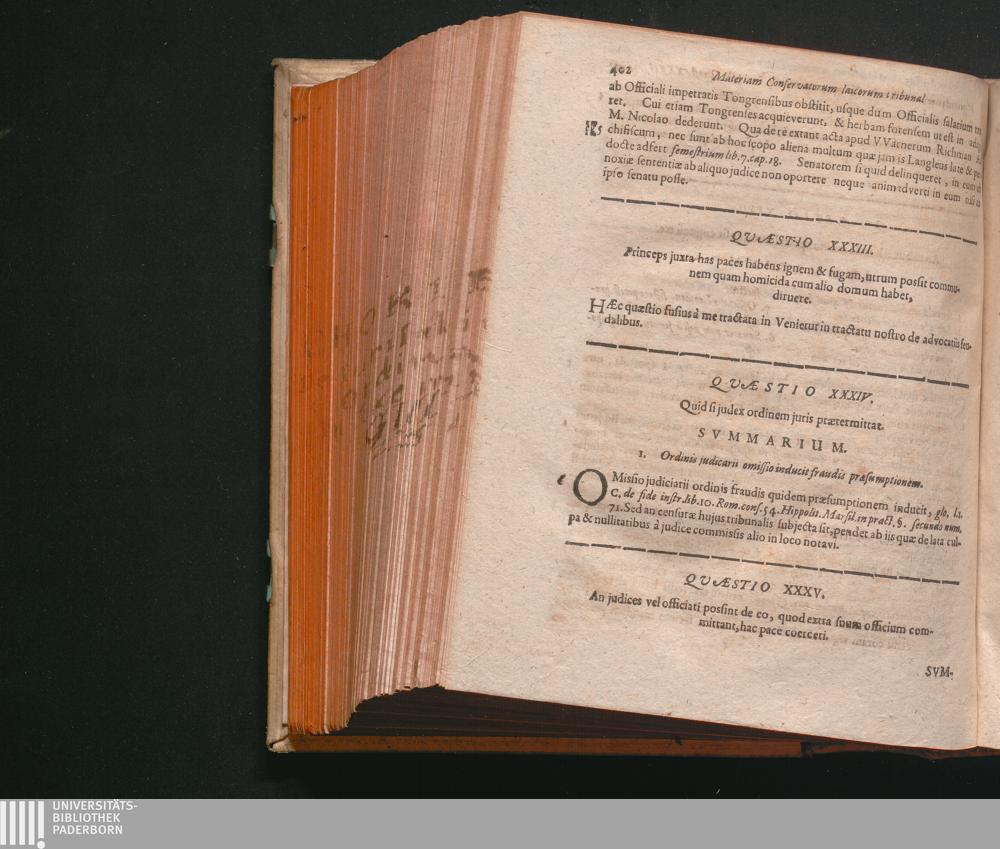 402 Materiam Conservatorum laicorum tribunal
ab Officiali impetratis Tongrensibus obstitit, usque dum Officialis salarium
ret. Cui etiam Tongrenses acquieverunt, & herbam forensem ut est in
M. Nicolao dederunt. Qua de re extant acta apud VVarnerum Richman
chifiscum, nec sunt ab hoc scopo aliena multum quæ jam is Langleus late &
docte adfert semestrium lib. 7. cap. 18. Senatorem si quid delinqueret, in eum
noxiæ sententiæ ab aliquo judice non oportere neque animadverti in eum nisi
ipso senatu posse.
QVÆSTIO XXXIII.
Princeps juxta has paces habens ignem & fugam, utrum possit commu-
nem quam homicida cum alio domum habet,
diruere.
HÆc quæstio fusius à me tractata in Venietur in tractatu nostro de advocatiis feu-
dalibus.
QVÆSTIO XXXIV.
Quid si judex ordinem juris prætermittat.
SVMMARIUM.
1. Ordinis judicarii omissio inducit fraudis præsumptionem.
OMissio judiciarii ordinis fraudis quidem præsumptionem inducit, glo. l. 1.
C. de fide instr. lib. 10. Rom. cons. 54. Hippolit. Marsil. in pract. §. secundo num.
71. Sed an censuræ hujus tribunalis subjecta sit, pendet ab iis quæ de lata cul-
pa & nullitatibus à judice commissis alio in loco notavi.
QVÆSTIO XXXV.
An judices vel officiati possint de eo, quod extra suum officium com-
mittant, hac pace coerceri.
SVM-
UNIVERSITÄTS-
BIBLIOTHEK
PADERBORN